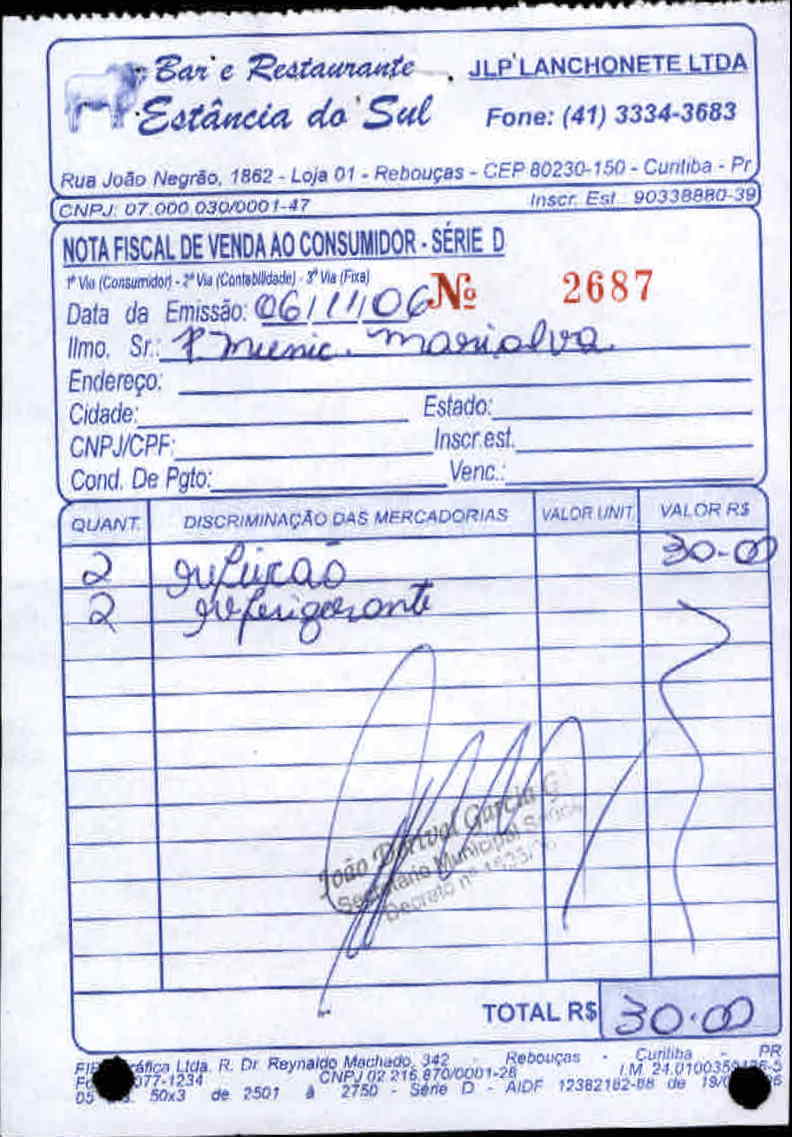 Bar e Restaurante
Estância do Sul
JLP LANCHONETE LTDA
Fone: (41) 3334-3683
Rua João Negrão, 1862 - Loja 01 - Rebouças - CEP 80230-150 - Curitiba - Pr
CNPJ: 07.000.030/0001-47 Inscr. Est.: 90338880-39
NOTA FISCAL DE VENDA AO CONSUMIDOR - SÉRIE D
1ª Via (Consumidor) - 2ª Via (Contabilidade) - 3ª Via (Fixa)
Nº 2687
Data da Emissão: 06/11/06
Ilmo. Sr.: P. Munic. Marialva
Endereço:
Cidade: Estado:
CNPJ/CPF: Inscr.est.
Cond. De Pgto: Venc.:
QUANT. DISCRIMINAÇÃO DAS MERCADORIAS VALOR UNIT. VALOR R$
2 refeição 30-00
2 refrigerante
João Dorival Garcia G
Secretário Municipal
Decreto nº
TOTAL R$ 30.00
Gráfica Ltda. R. Dr. Reynaldo Machado, 342 - Rebouças - Curitiba - PR
077-1234 CNPJ 02.216.870/0001-26 I.M. 24.0100
05 50x3 de 2501 à 2750 - Série D - AIDF 12382182-88 de 19/